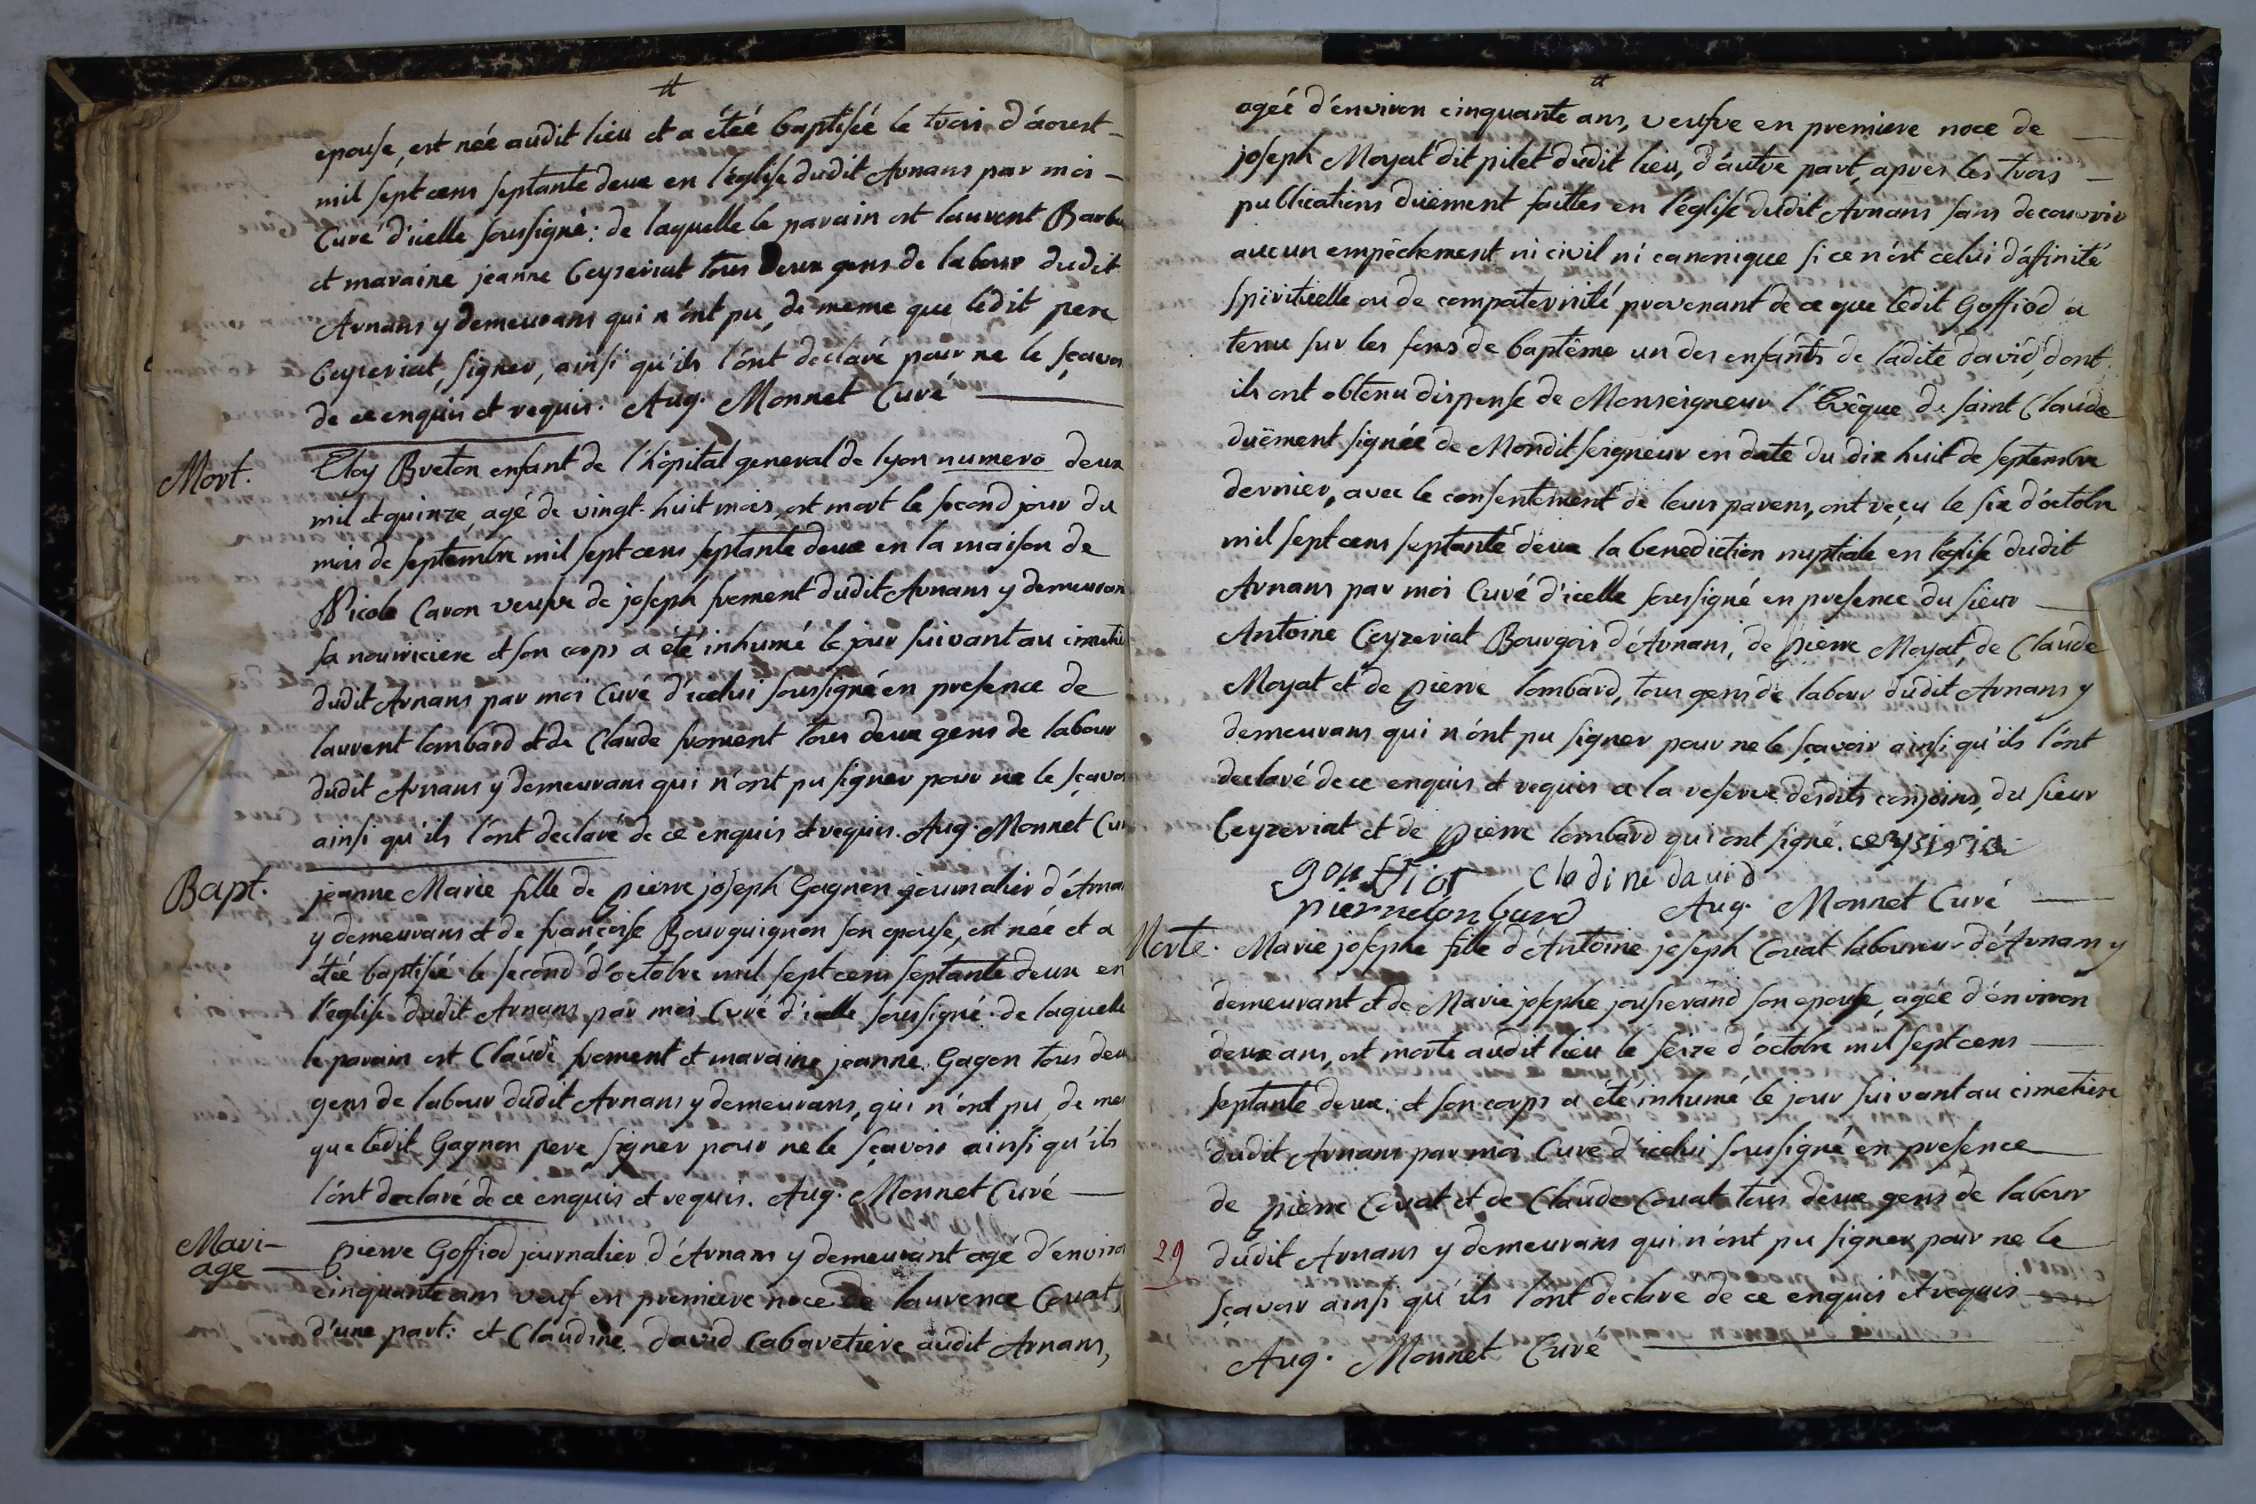 epouse, est née audit lieu et a étée baptisée le trois d'aoust
mil sept cens septante deux en l'église dudit Arnans par moi
Curé d'icelle soussigné: de laquelle le parain est laurent
et maraine jeanne Ceyzeriat tous deux gens de labour dudit
Arnans y demeurans qui n'ont pu, de meme que ledit pere
Ceyzeriat, signer, ainsi qu'ils l'ont declaré pour ne le sçavoi
de ce enquis et requis. Aug. Monnet Curé
Mort.
Eloy Breton enfant de l'hôpital general de lyon numero deux
mil et quinze, agé de vingt-huit mois, est mort le second jour du
mois de septembre mil sept cens septante deux en la maison de
Nicole Caron veufve de joseph froment dudit Arnans y demeuran
sa nourriciere et son corps a été inhumé le jour suivant au cimetie
dudit Arnans par moi Curé d'icelui soussigné en presence de
laurent lombard et de Claude froment tous deux gens de labour
dudit Arnans y demeurans qui n'ont pu signer pour ne le sçavoi
ainsi qu'ils l'ont declaré de ce enquis et requis. Aug. Monnet Cur
Bapt.
jeanne Marie fille de pierre joseph Gagnon journalier d'Arna
y demeurans et de françoise Bourguignon son epouse, est née et a
étée baptisée le second d'octobre mil sept cens septante deux en
l'eglise dudit Arnans par moi Curé d'icelle soussigné. de laquelle
le parain est Claude froment et maraine jeanne Gagon tous deu
gens de labour dudit Arnans y demeurans, qui n'ont pu, de me
que ledit Gagnon pere, signer pour ne le sçavoir ainsi qu'ils
l'ont declaré de ce enquis et requis. Aug. Monnet Curé
Mari-
age
pierre Goffiod journalier d'Arnans y demeurant agé d'environ
cinquante ans veuf en premiere noce de laurence Covat
d'une part: et Claudine david Cabaretiere audit Arnans,
agée d'environ cinquante ans, veufve en premiere noce de
joseph Moyat dit pilet dudit lieu, d'autre part, apres les trois
publications duëment faittes en l'église dudit Arnans sans decouvrir
aucun empêchement ni civil ni canonique si ce n'est celui d'afinité
spirituelle ou de compaternité provenant de ce que ledit Goffiod a
tenu sur les fons de baptême un des enfants de ladite david, dont
ils ont obtenu dispense de Monseigneur l'Evêque de saint Claude
duëment signée de Mondit seigneur en date du dix huit de septembre
dernier, avec le consentement de leurs parens, ont reçu le six d'octobre
mil sept cens septante deux la benediction nuptiale en l'église dudit
Arnans par moi Curé d'icelle soussigné en presence du sieur
Antoine Ceyzeriat Bourgois d'Arnans, de pierre Moyat, de Claude
Moyat et de pierre lombard, tous gens de labour dudit Arnans y
demeurans qui n'ont pu signer pour ne le sçavoir ainsi qu'ils l'ont
declaré de ce enquis et requis a la reserve desdits conjoins, du sieur
Ceyzeriat et de pierre lombard qui ont signé.
Cladine david
pierre lonbard Aug. Monnet Curé
Morte.
Marie josephe fille d'Antoine joseph Covat laboureur d'Arnans y
demeurant et de Marie josephe jousserand son epouse, agée d'environ
deux ans, est morte audit lieu le seize d'octobre mil sept cens
septante deux, et son corps a été inhumé le jour suivant au cimetiere
dudit Arnans par moi Curé d'icelui soussigné en presence
de pierre Covat et de Claude Covat tous deux gens de labour
29
dudit Arnans y demeurans qui n'ont pu signer pour ne le
sçavoir ainsi qu'ils l'ont declaré de ce enquis et requis
Aug. Monnet Curé